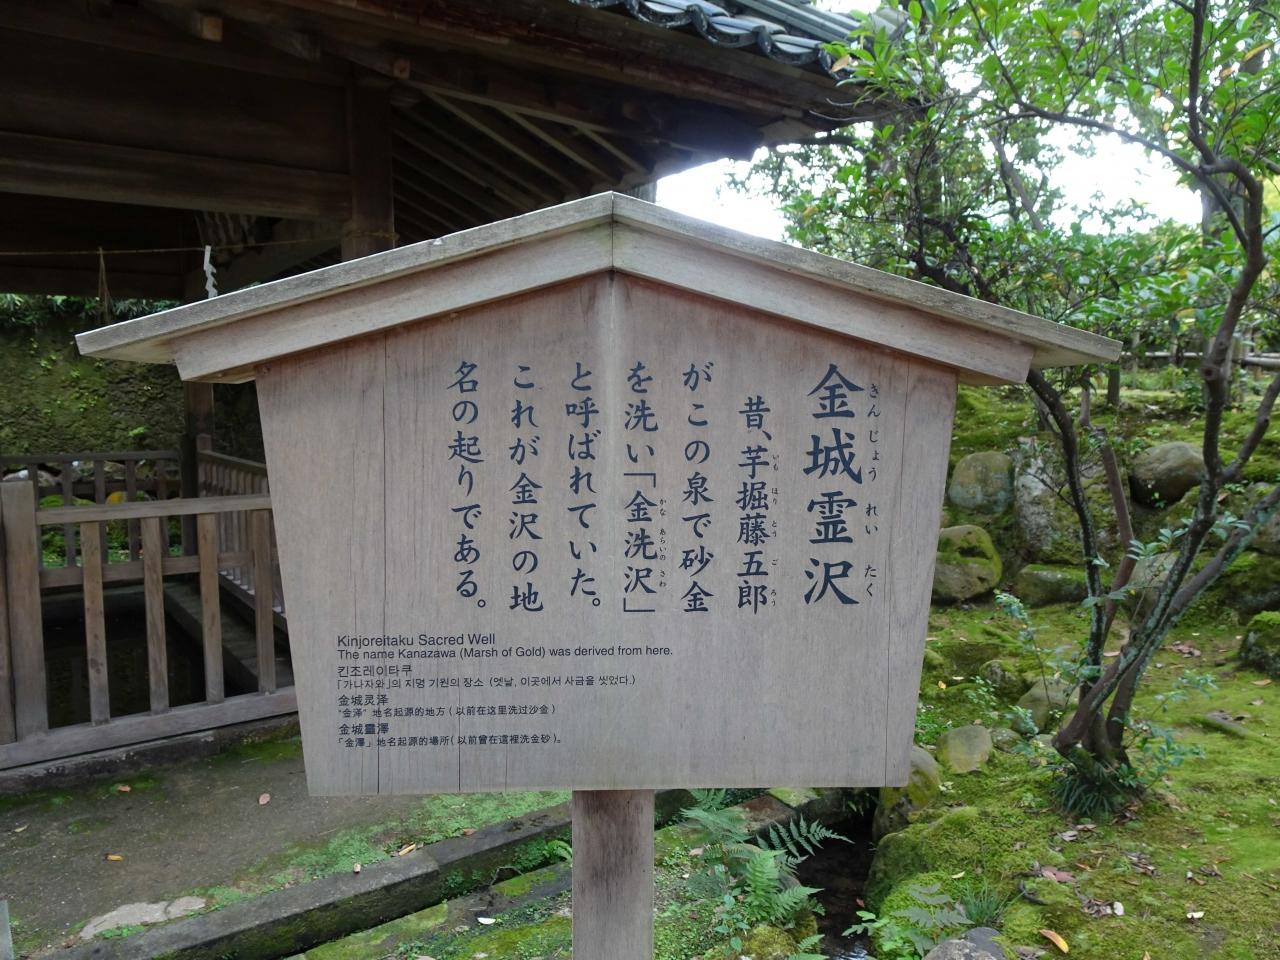 金城霊沢
きんじょうれいたく
昔、芋掘藤五郎
いもほりとうごろう
がこの泉で砂金
を洗い「金洗沢」
かなあらいのさわ
と呼ばれていた。
これが金沢の地
名の起りである。
Kinjoreitaku Sacred Well
The name Kanazawa (Marsh of Gold) was derived from here.
킨조레이타쿠
「가나자와」의 지명 기원의 장소 (옛날, 이곳에서 사금을 씻었다.)
金城灵泽
“金泽” 地名起源的地方（以前在这里洗过沙金）
金城靈澤
「金澤」地名起源的場所（以前曾在這裡洗金砂）。